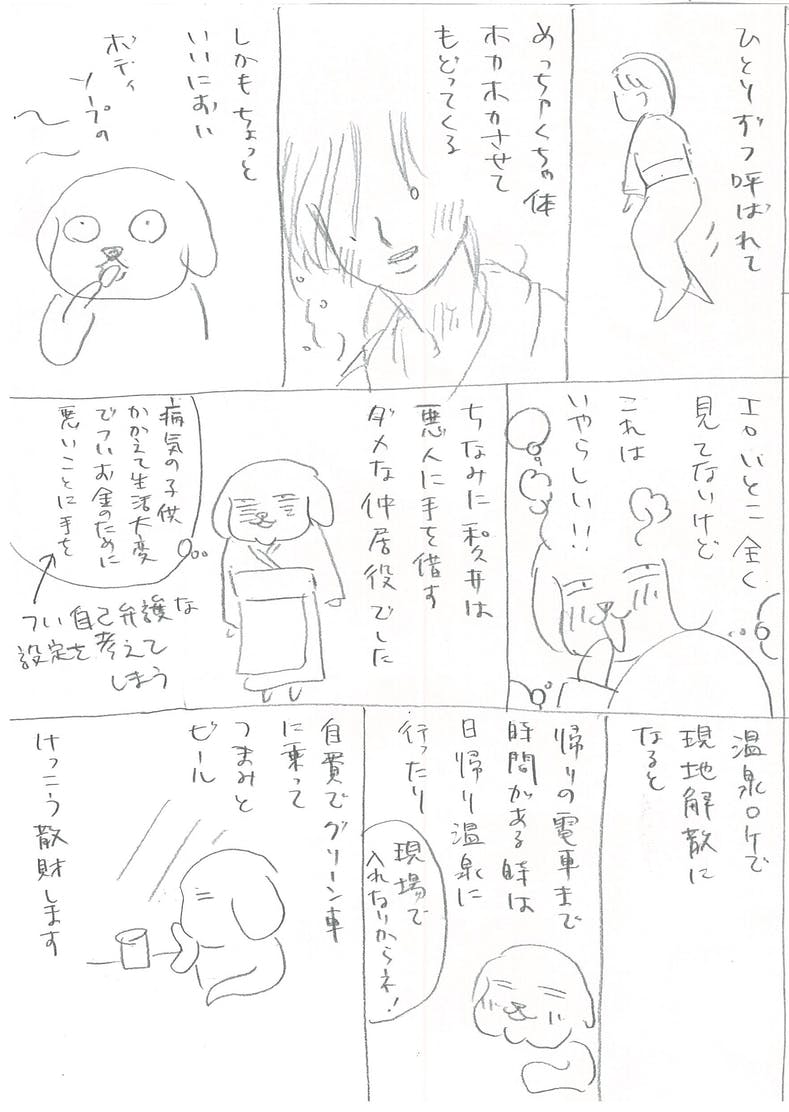 ひとりずつ呼ばれて
めっちゃくちゃ体
ホカホカさせて
もどってくる
しかもちょっと
いいにおい
ボディ
ソープの
エロいとこ全く
見てないけど
これは
いやらしい!!
ちなみに和久井は
悪人に手を借す
ダメな仲居役でした
病気の子供
かかえて生活大変
でついお金のために
悪いことに手を
つい自己弁護な
設定を考えて
しまう
温泉ロケで
現地解散に
なると
帰りの電車まで
時間がある時は
日帰り温泉に
行ったり
現場で
入れないからネ!
自費でグリーン車
に乗って
つまみと
ビール
けっこう散財します